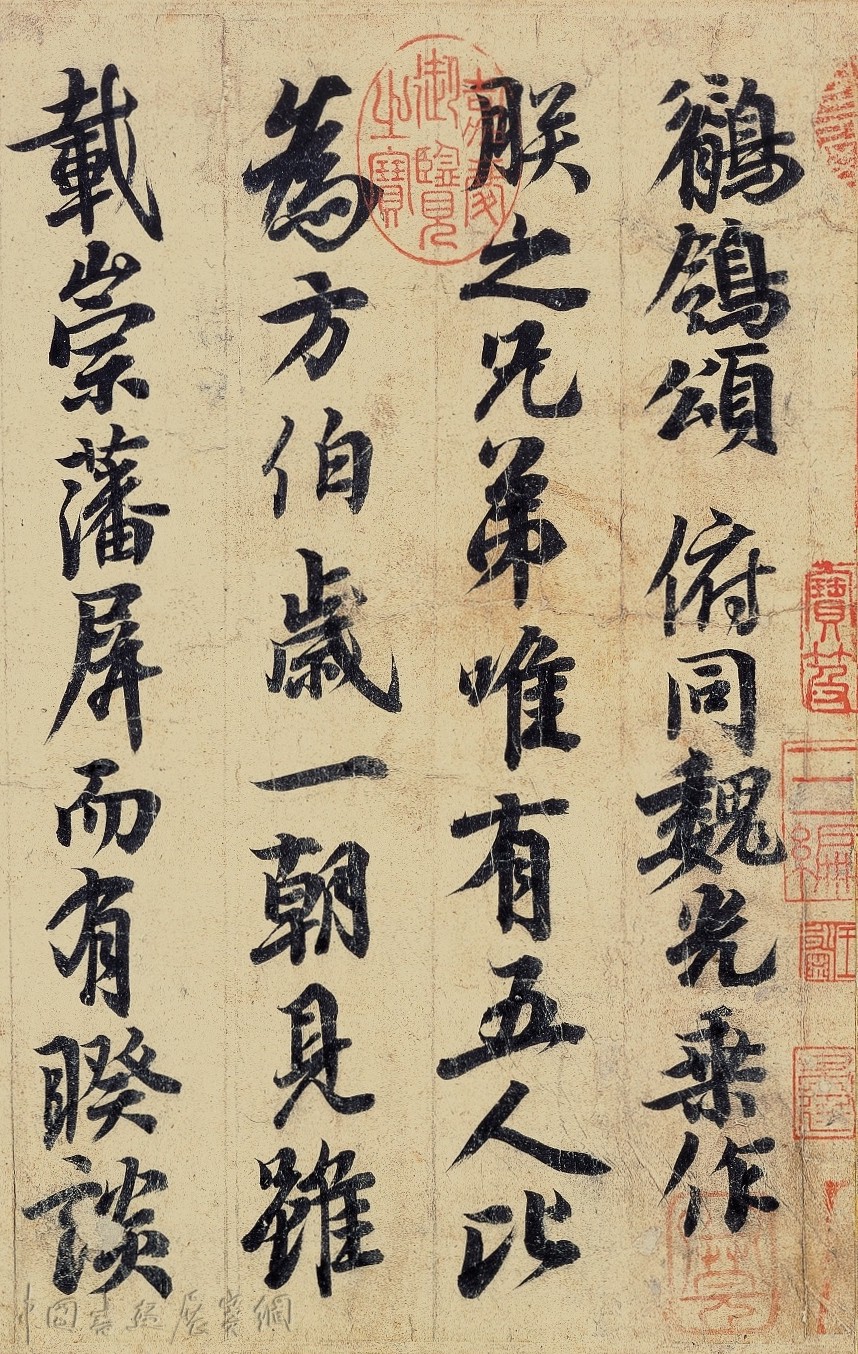 鶺鴒頌 俯同魏光乗作
朕之兄弟唯有五人比
為方伯歳一朝見雖
載崇藩屏而有睽談
嘉慶御覽之寶
寶笈三編
中國書法展賽網